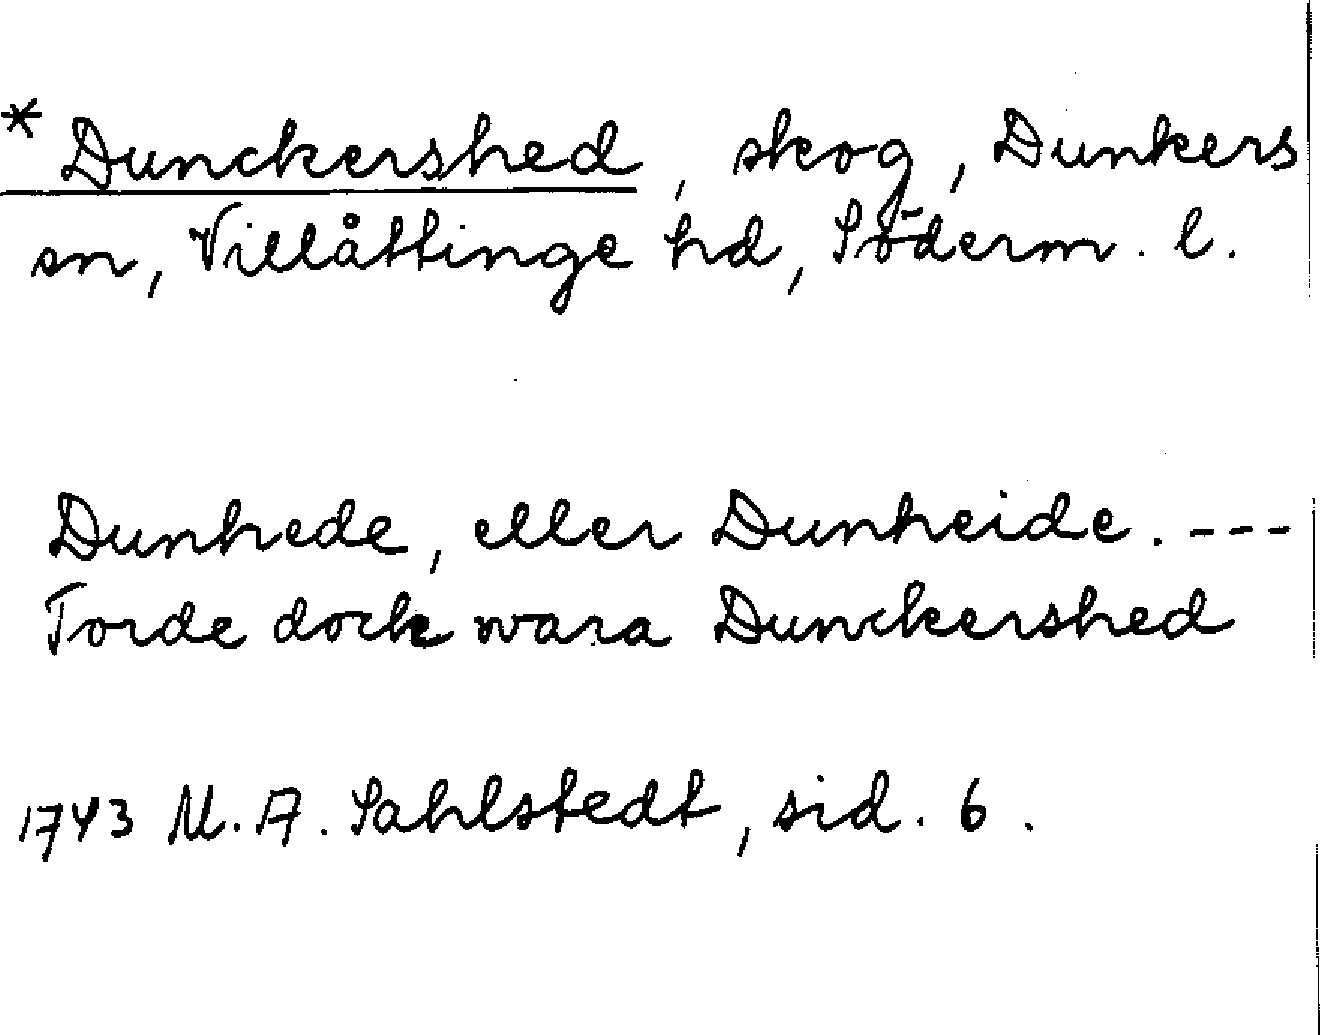 * Dunckershed, skog, Dunkers
sn, Villåttinge hd, Söderm. l.
Dunhede, eller Dunheide. ---
Torde dock wara Dunckershed
1743 M. A. Sahlstedt, sid. 6.